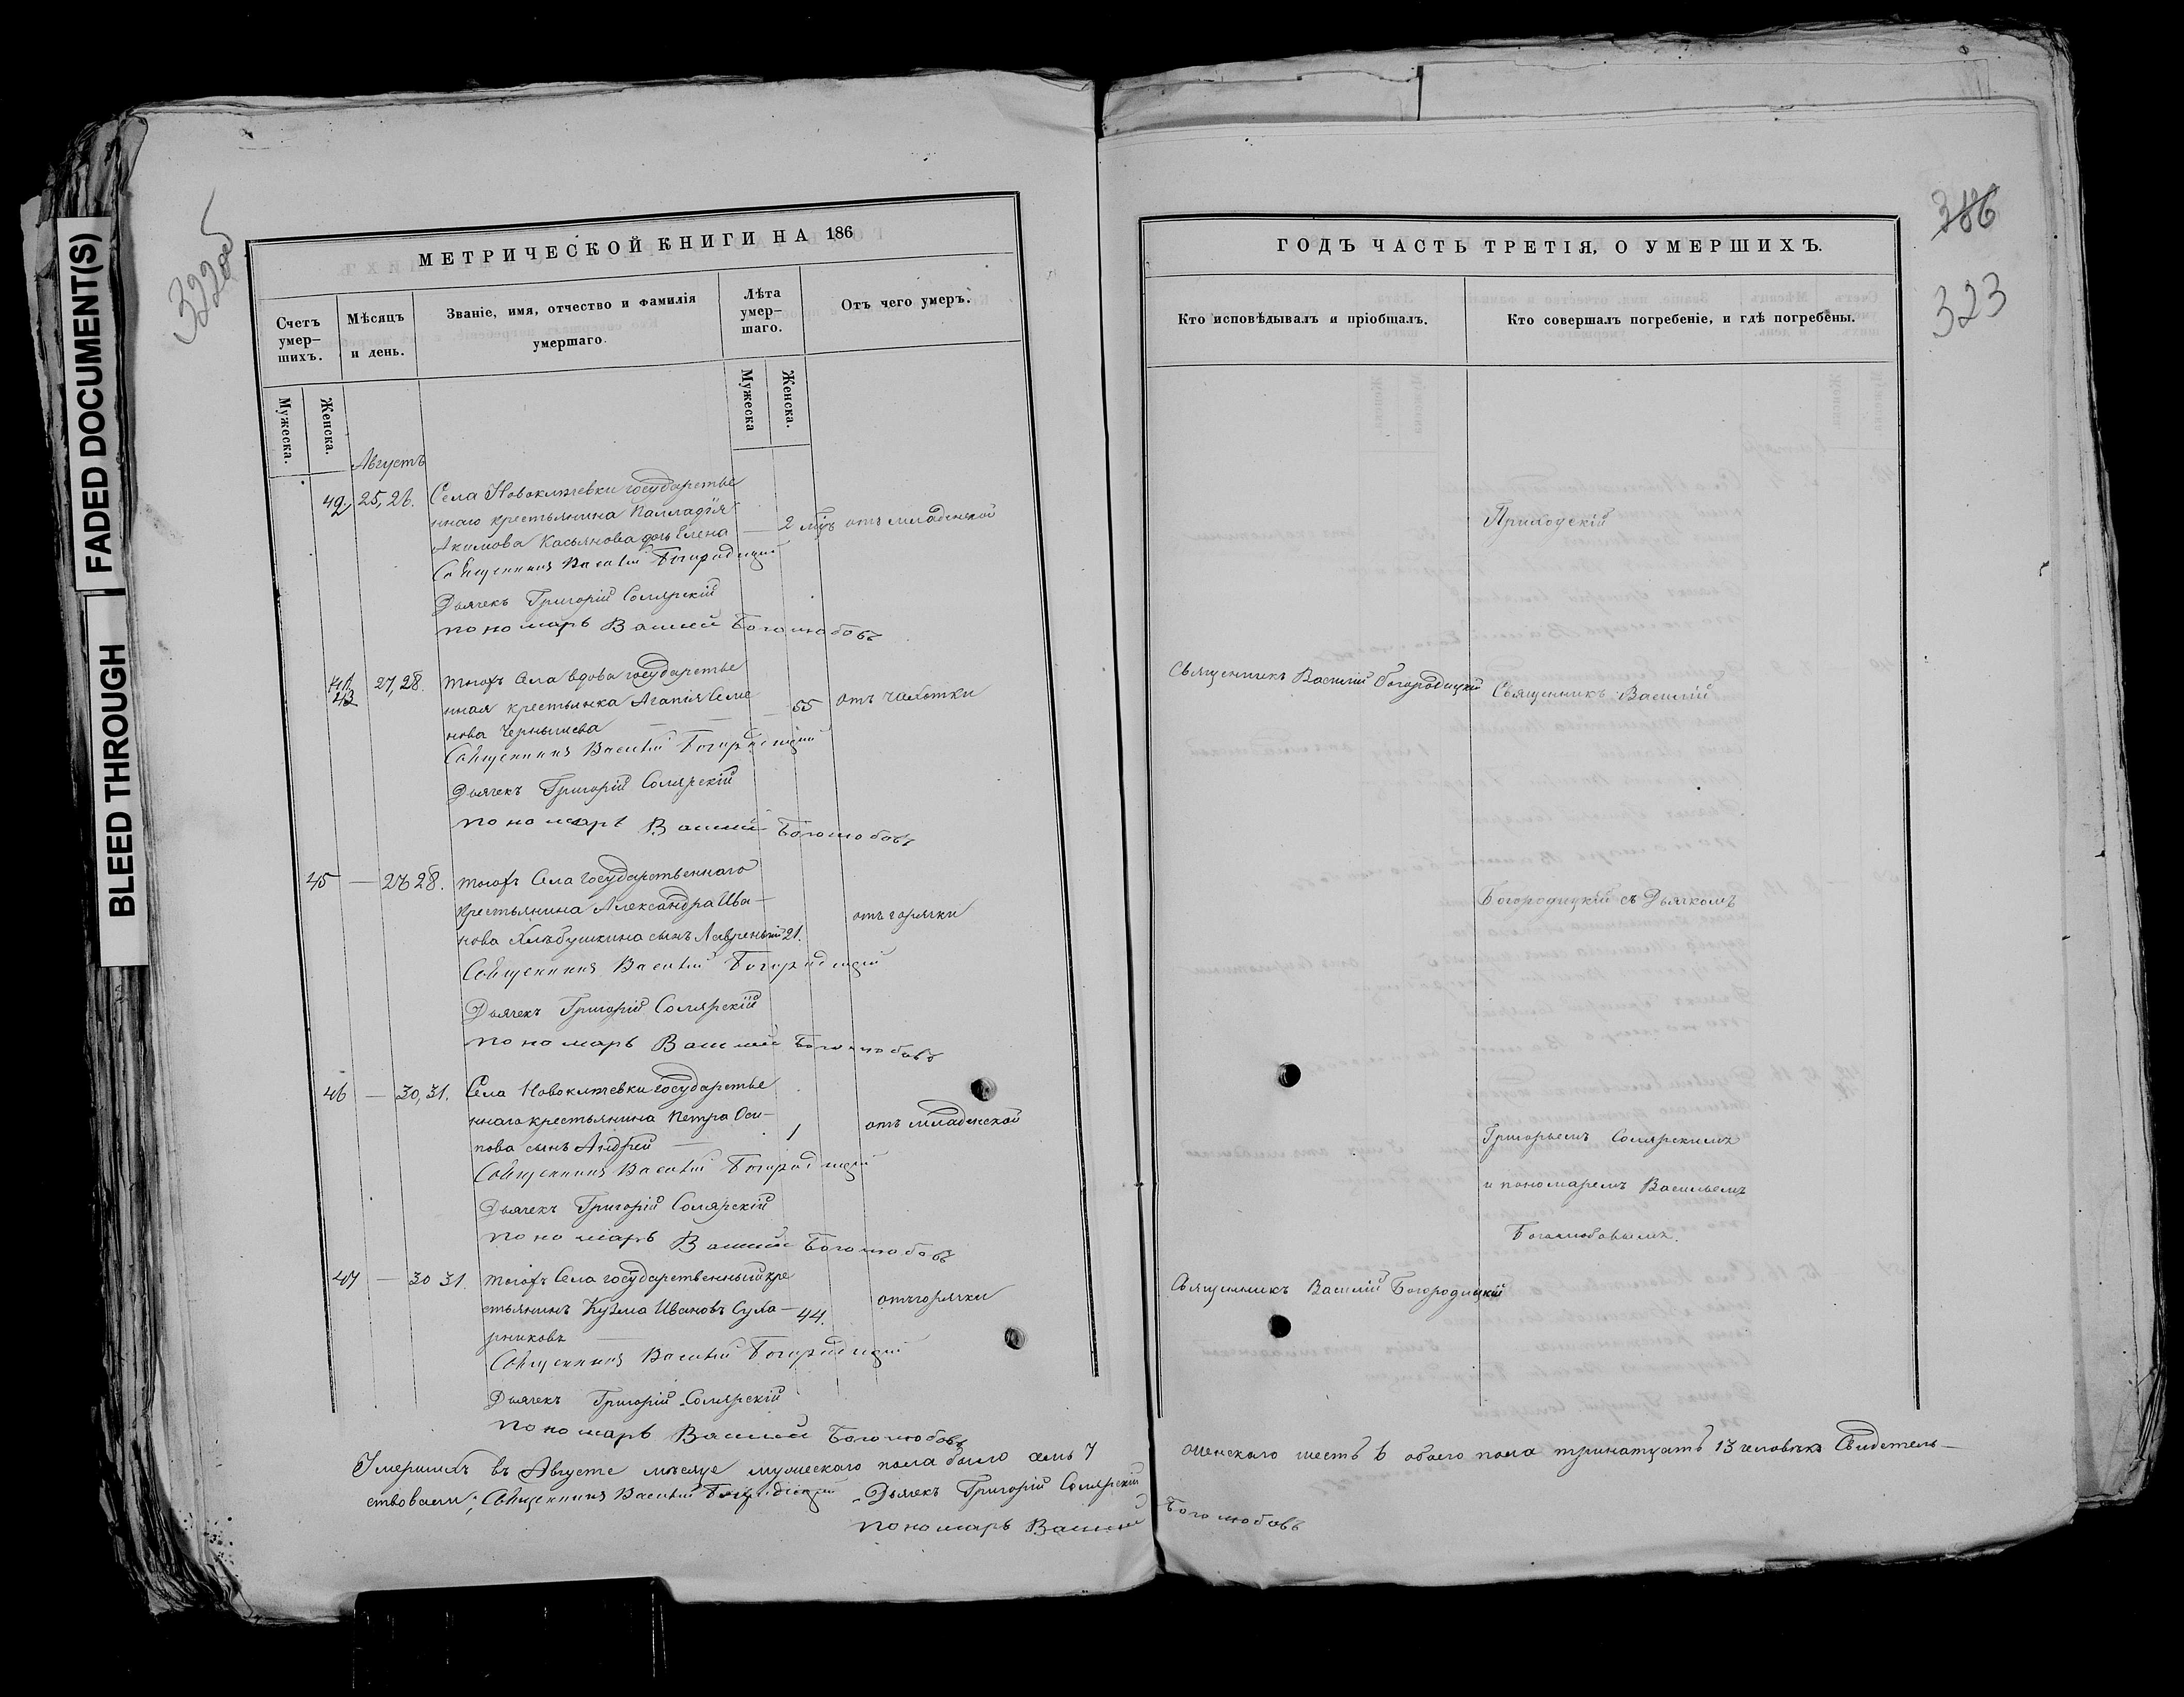 FADED DOCUMENT(S)
BLEED THROUGH
322об
МЕТРИЧЕСКОЙ КНИГИ НА 186
Счетъ умер-шихъ.
Мѣсяцъ и день.
Званіе, имя, отчество и фамилія умершаго.
Лѣта умер-шаго.
Отъ чего умеръ.
Мужеска.
Женска.
Мужеска
Женска.
Августъ
25, 26. Села Новоключевки государстве
ннаго крестьянина Палладія
Акимова Касьянова дочь Елена — 2 отъ младенской
Священникъ Василій Богородицкій
Дьячекъ Григорій Солярскій
пономарь Василій Боголюбовъ
27, 28. тогожъ села вдова государстве
нная крестьянка Агапія Семе
нова Чернышева — 55 отъ чахотки
Священникъ Василій Богородицкій
Дьячекъ Григорій Солярскій
пономарь Василій Боголюбовъ
45 — 28. тогожъ села государственнаго
крестьянина Александра Ива-
нова Хлѣбушкина сынъ Лаврентій 21. отъ горячки
Священникъ Василій Богородицкій
Дьячекъ Григорій Солярскій
пономарь Василій Боголюбовъ
46 — 30, 31. Села Новоключевки государстве
ннаго крестьянина Петра Оси-
пова сынъ Андрей — 1 отъ младенской
Священникъ Василій Богородицкій
Дьячекъ Григорій Солярскій
пономарь Василій Боголюбовъ
47 — 30 31. тогожъ села государственный кре
стьянинъ Кузма Ивановъ Суха- 44. отъ горячки
рниковъ
Священникъ Василій Богородицкій
Дьячекъ Григорій Солярскій
пономарь Василій Боголюбовъ
Умершихъ въ Августѣ мѣсяцѣ мужескаго пола было семь 7
ствовали: Священникъ Василій Богородицкій Дьячекъ Григорій Солярскій
пономарь Василій
386
323
ГОДЪ ЧАСТЬ ТРЕТІЯ, О УМЕРШИХЪ.
Кто исповѣдывалъ и пріобщалъ.
Кто совершалъ погребеніе, и гдѣ погребены.
Приходскій
Священникъ Василій Богородицкій
Священникъ Василій
Богородицкій съ Дьячкомъ
Григорьемъ Солярскимъ
и пономаремъ Васильемъ
Боголюбовымъ.
Священникъ Василій Богородицкій
женскаго шесть 6 обоего пола тринатцать 13 человѣкъ Свидетель-
Боголюбовъ